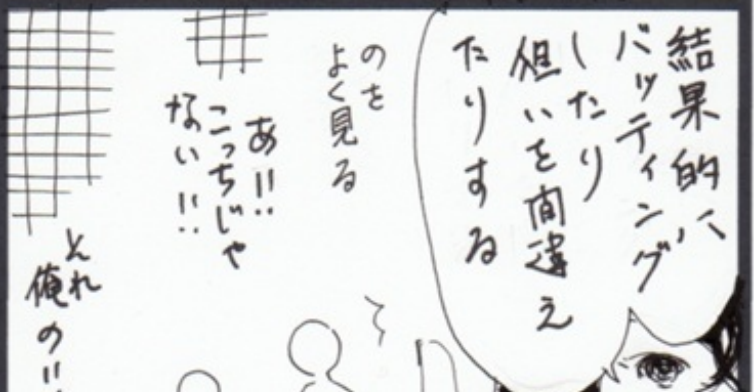 結果的に
バッティング
したり
狙いを間違え
たりする
のを
よく見る
あ!!
こっちじゃ
ない!!
それ
俺の!!